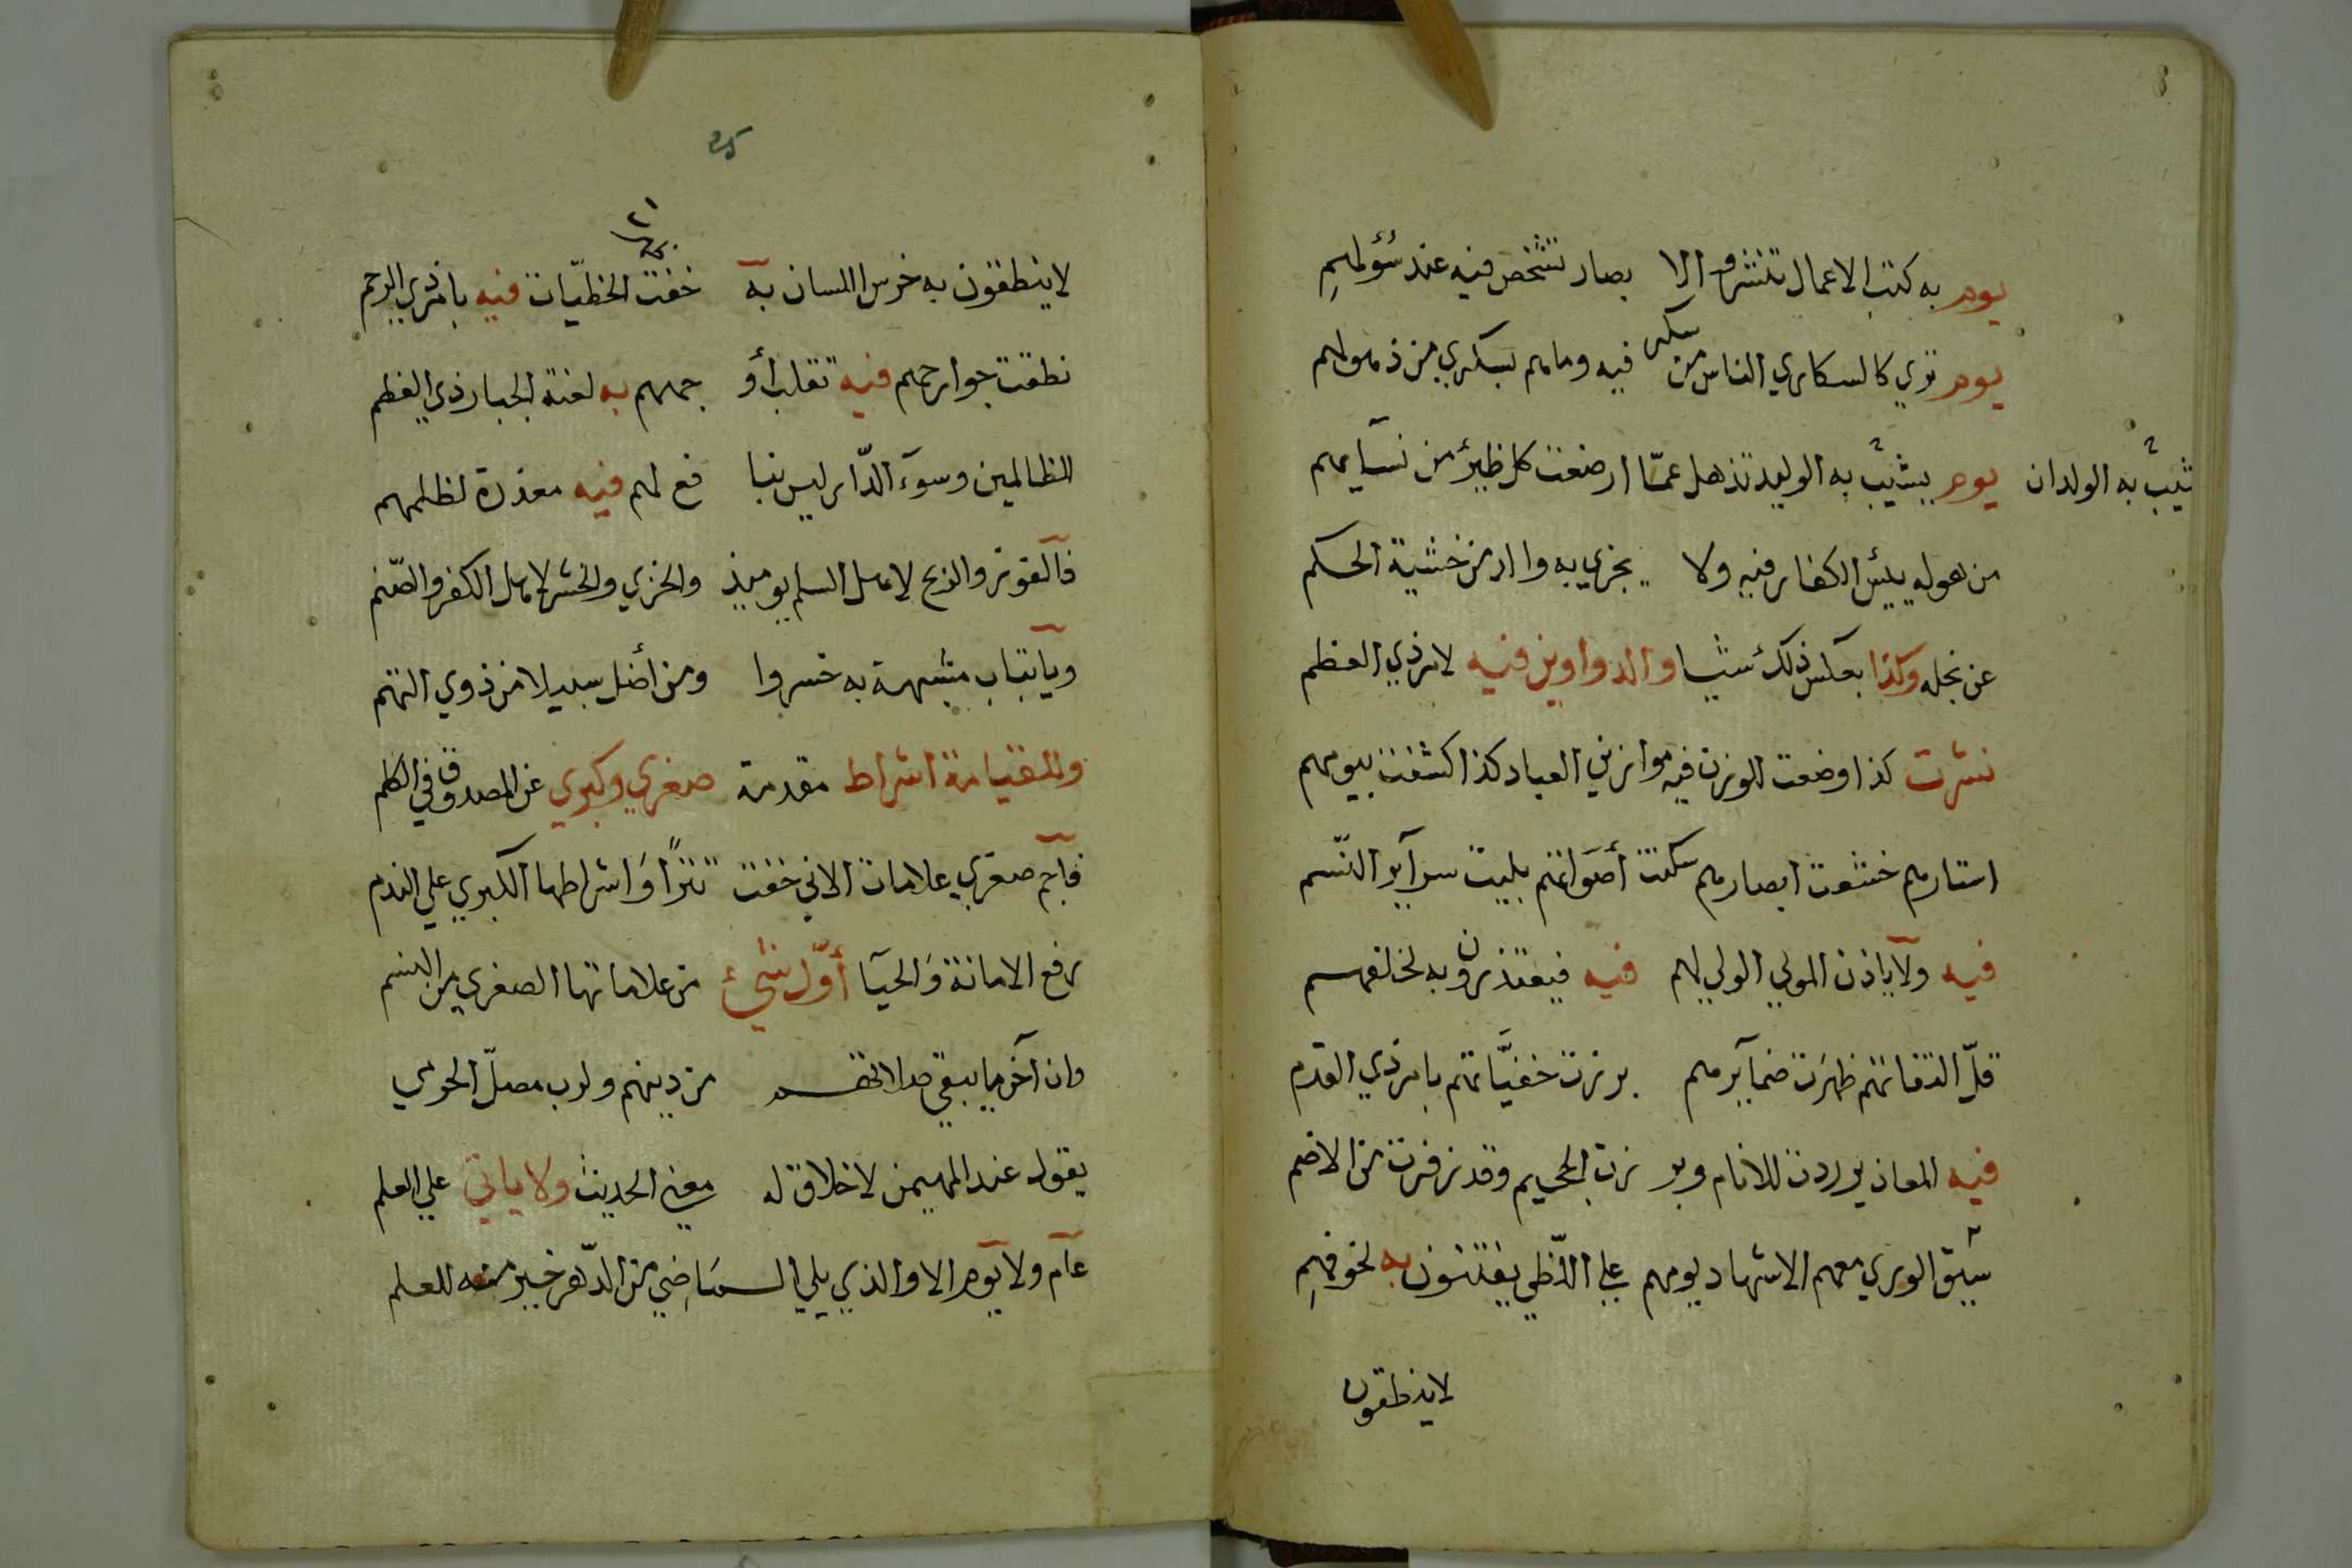 يوم به كتب الاعمال تنشر والا بصار تشخص فيه عند سؤلهمِ
يوم تري كالسكاري الناس من سكر فيه وما هم بسكري من ذهولهم
يوم يشيبُ به الوليد تذهل عمّا ارضعت كل ظيرٍ من نسآيهم
تشيبُ به الولدان
من هوله ييئس الكفار فيه ولا يجزي به والد من خشية الحكم
عن نجله وكذا بعكس ذلك شيا والدواوين فيه لامر ذي العظم
نشرت كذا وضعت للوزن فيه موازين العباد كذا اكشفت بيومهم
استارهم خشعت ابصارهم سكتت أصواتهم بليت سرآير النّسم
فيه ولا ياذن المولي الولي لهم فيه فيعتذرون به لخلفهم
قلّ التفاتهم ظهرت ضمآيرهم برزت خفيّاتهم بامر ذي القدم
فيه المعاذ يوردن للانام وبر زت الجحيم وقد زفرت من الاضم
سيق الوري معهم الاشهاد يومهم علي اللّظي يفتنون به لخوفهمِ
لاينطقون
٢١
لاينطقون به خرس اللسان به خفت الخطيّات فيه بامر ذي الرحم
نطقت جوارحهم فيه تقلب أو جههم به لعنة الجبار ذي العظم
للظالمين وسوء الدّار ليس بنا فع لهم فيه معذرة لظلمهم
فالفوز والربح لاهل السلم يوميذ والخزي والخسر لاهل الكفر والصّنم
ويا تباب مشبهة به خسروا ومن أضل سبيلا من ذوي التهم
وللقيامة اشراط مقدمة صغري وكبري عن المصدوق في الكلم
فآجم صغري علامات الاني خفت تترًا وَاشراطها الكبري علي الندم
رفع الامانة وَالحيآ أوّل شيءٍ من علاماتها الصغري من النسم
وان آخر ما يبقي صلاتهم من دينهم ولرب مصلّ الحرمي
يقول عند المهيمن لا خلاق له معني الحديث ولا ياتي علي العلم
عآم ولا يوم الا والذي يلي الماضي من الدّهر خير منه للعلم